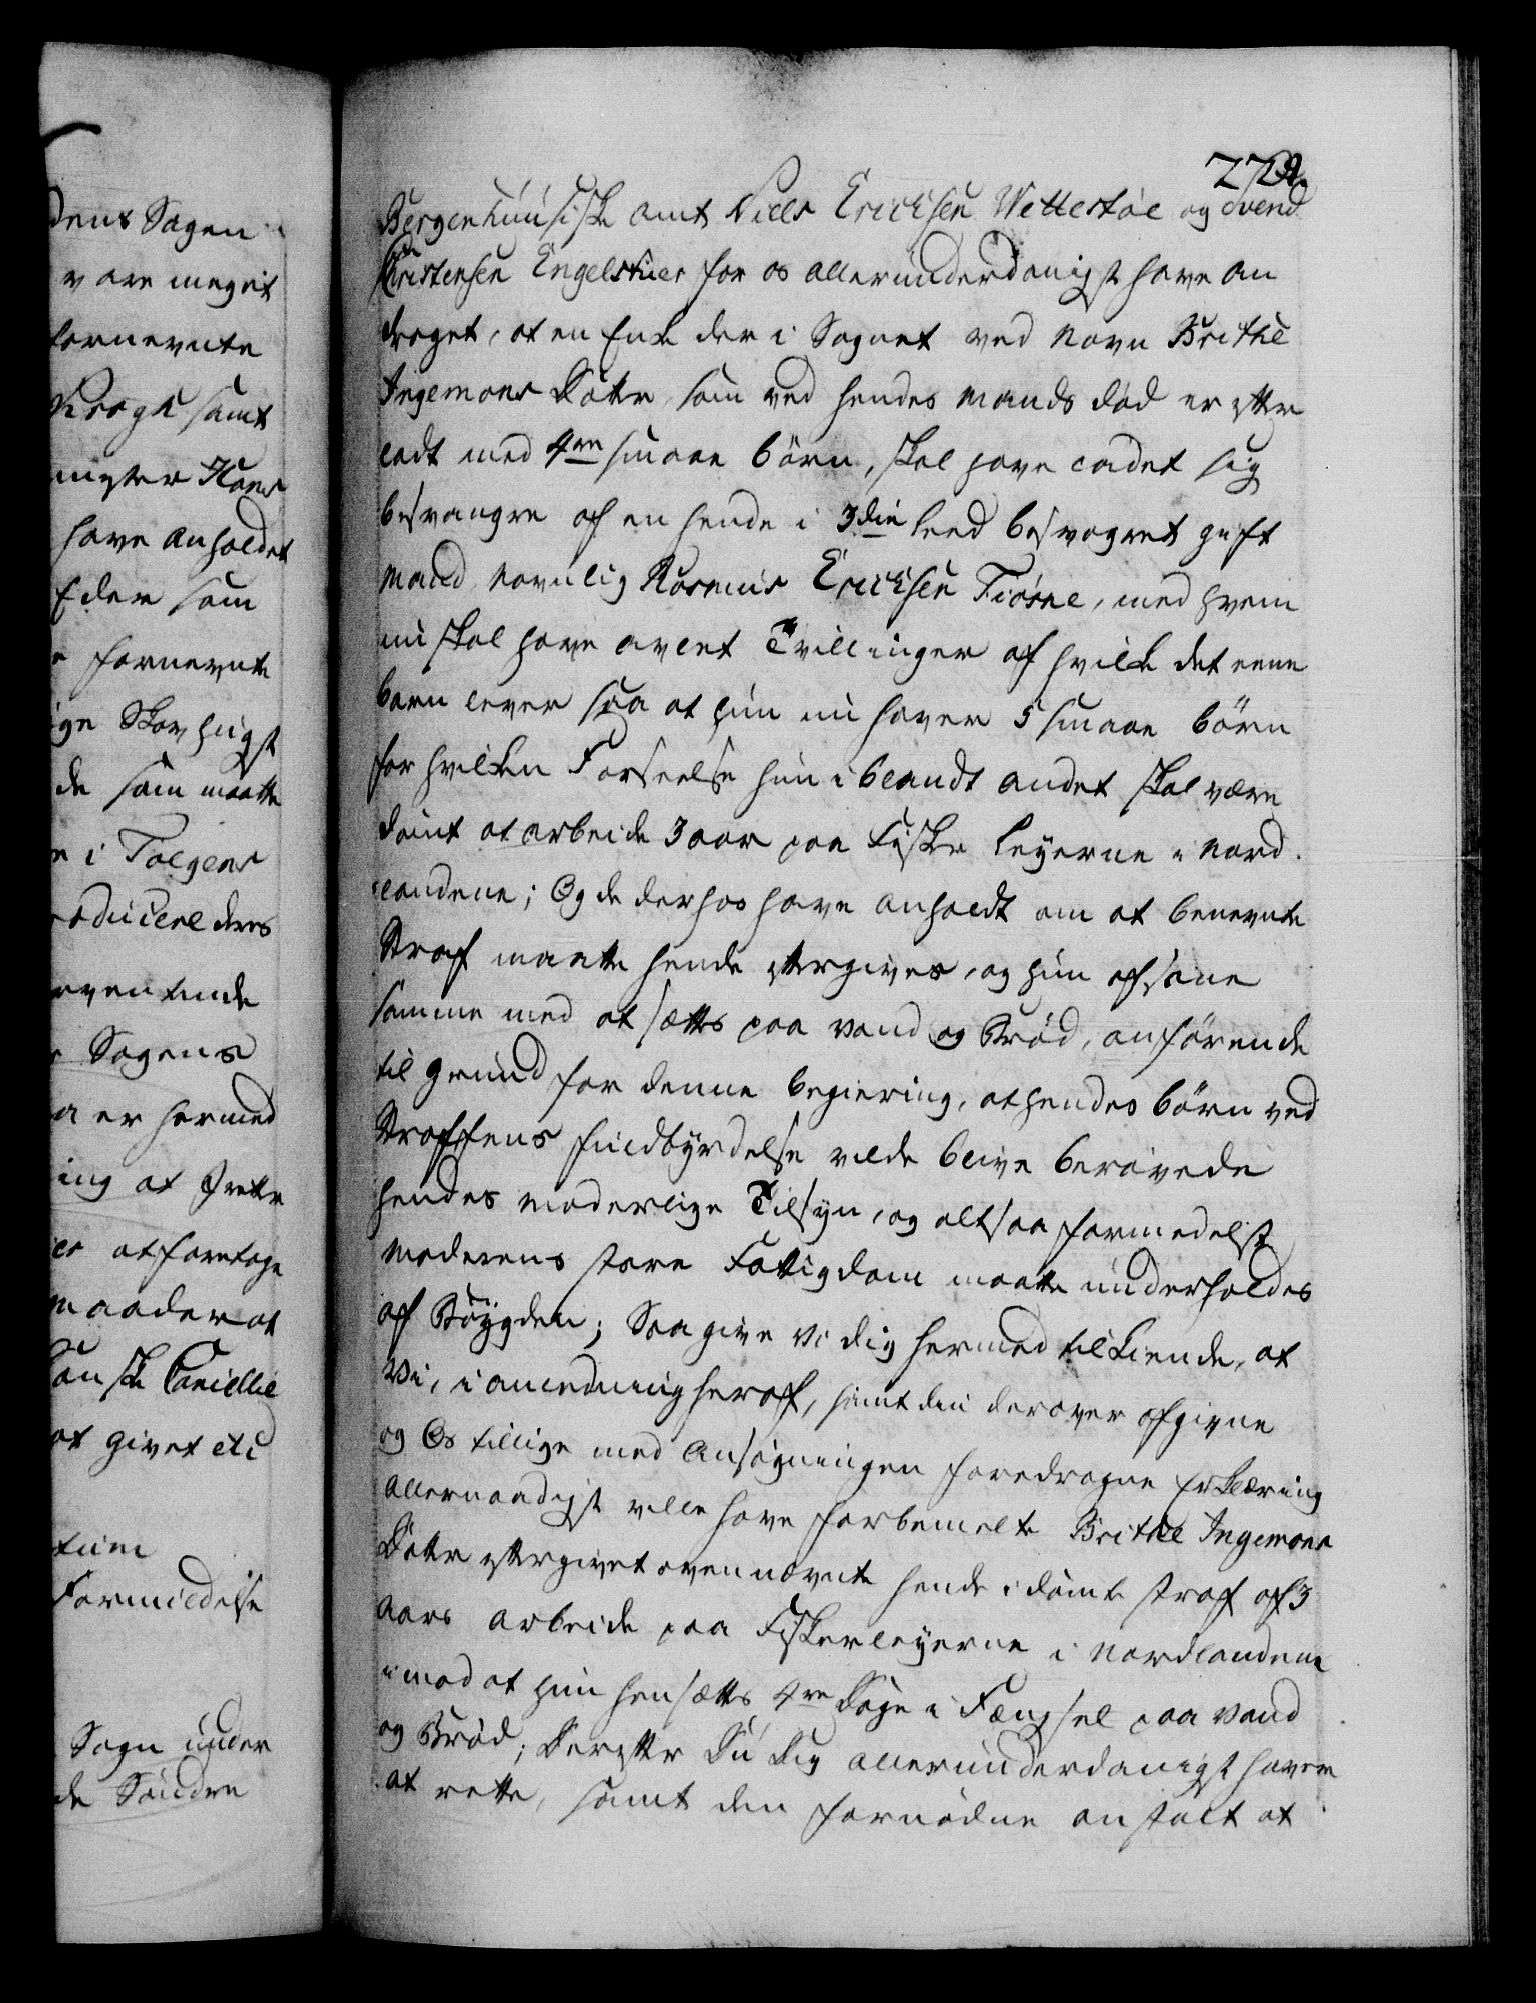 dens Sagen
vare meget
fornevnte
Krogh samt
Hans
have anholdet
Eder som
fornevnte
ige Skovhugst
de som maatte
i Tolgens
producere deres
vventende
Sagens
a er hermed
ing at
at foretage
maader at
Danske Cancellie
at givet etc
Formildelse
Sogn under
de Søndre
229.
Bergenhuusiske Amt Niels Ericksen Wettestøe og Svend
Christensen Engelskier for os allerunderdanigst have an
draget, at en Enke der i Sognet ved Navn Brithe
Ingemons Datter, som ved hendes Mands død er efter
ladt med 4re smaae børn, skal have ladet sig
besvangre af en hende i 3die Leed besvogret gift
Mand navnlig Rasmus Ericksen Tiørne, med hvem
nu skal have avlet Tvillinger af hvilke det eene
barn lever saa at hun nu haver 5 smaae børn
for hvilken Forseelse hun iblandt andet skal være
dømt at arbeide 3 aar paa Fiske Leyerne i Nord
landene; Og de derhos have anholdt om at benevnte
Straf maatte hende eftergives, og hun afsone
samme med at sættes paa Vand og Brød, anførende
til grund for denne begiering, at hendes børn ved
Straffens fuldbyrdelse vilde blive berøvede
hendes moderlige Tilsyn, og altsaa formedelst
Moderens store Fattigdom maatte underholdes
af Bøygden; Saa give Vi dig hermed tilkiende, at
Vi, i anledning heraf, samt din derover afgivne
og Os tillige med Ansøgningen foredragne Erklæring
allernaadigst ville have forbemelte Brithe Ingemons
Datter eftergivet ovennævnte hende idømte straf af 3
Aars arbeide paa Fiskerleyerne i Nordlandene
imod at hun hensættes 4re Dage i Fængsel paa Vand
og Brød; Derefter Du Dig allerunderdanigst haver
at rette, samt den fornødne anstalt at